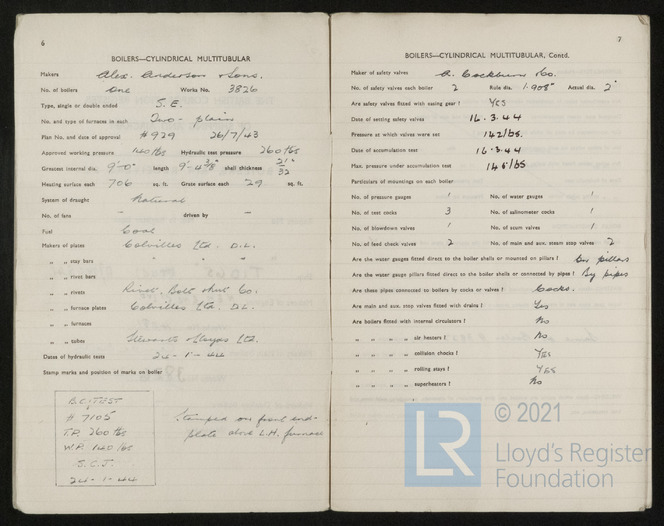 6
BOILERS—CYLINDRICAL MULTITUBULAR
Makers Alex. Anderson & Sons.
No. of boilers One Works No. 3826
Type, single or double ended S.E.
No. and type of furnaces in each Two - plain
Plan No. and date of approval #929 26/7/43
Approved working pressure 140 lbs Hydraulic test pressure 260 lbs
Greatest internal dia. 9'-0" length 9'-4 3/8" shell thickness 21"/32
Heating surface each 706 sq. ft. Grate surface each 29 sq. ft.
System of draught Natural
No. of fans - driven by -
Fuel Coal
Makers of plates Colvilles Ltd. D.L.
„ „ stay bars " " "
„ „ rivet bars
„ „ rivets Rivet Bolt & Nut Co.
„ „ furnace plates Colvilles Ltd. D.L.
„ „ furnaces
„ „ tubes Stewarts & Lloyds Ltd.
Dates of hydraulic tests 24-1-44
Stamp marks and position of marks on boiler
B.C. TEST
# 7105
T.P. 260 lbs
W.P. 140 lbs
S.C.J.
24-1-44
Stamped on front end-
plate above L.H. furnace
7
BOILERS—CYLINDRICAL MULTITUBULAR, Contd.
Maker of safety valves A. Cockburn & Co.
No. of safety valves each boiler 2 Rule dia. 1.908" Actual dia. 2"
Are safety valves fitted with easing gear? YES
Date of setting safety valves 16.3.44
Pressure at which valves were set 142 lbs.
Date of accumulation test 16.3.44
Max. pressure under accumulation test 145 lbs
Particulars of mountings on each boiler
No. of pressure gauges 1 No. of water gauges 1
No. of test cocks 3 No. of salinometer cocks 1
No. of blowdown valves 1 No. of scum valves 1
No. of feed check valves 2 No. of main and aux. steam stop valves 2
Are the water gauges fitted direct to the boiler shells or mounted on pillars? On pillars
Are the water gauge pillars fitted direct to the boiler shells or connected by pipes? By pipes
Are these pipes connected to boilers by cocks or valves? Cocks.
Are main and aux. stop valves fitted with drains? Yes
Are boilers fitted with internal circulators? No
„ „ „ „ air heaters? No.
„ „ „ „ collision chocks? YES
„ „ „ „ rolling stays? YES
„ „ „ „ superheaters? No
© 2021
LR
Lloyd's Register
Foundation